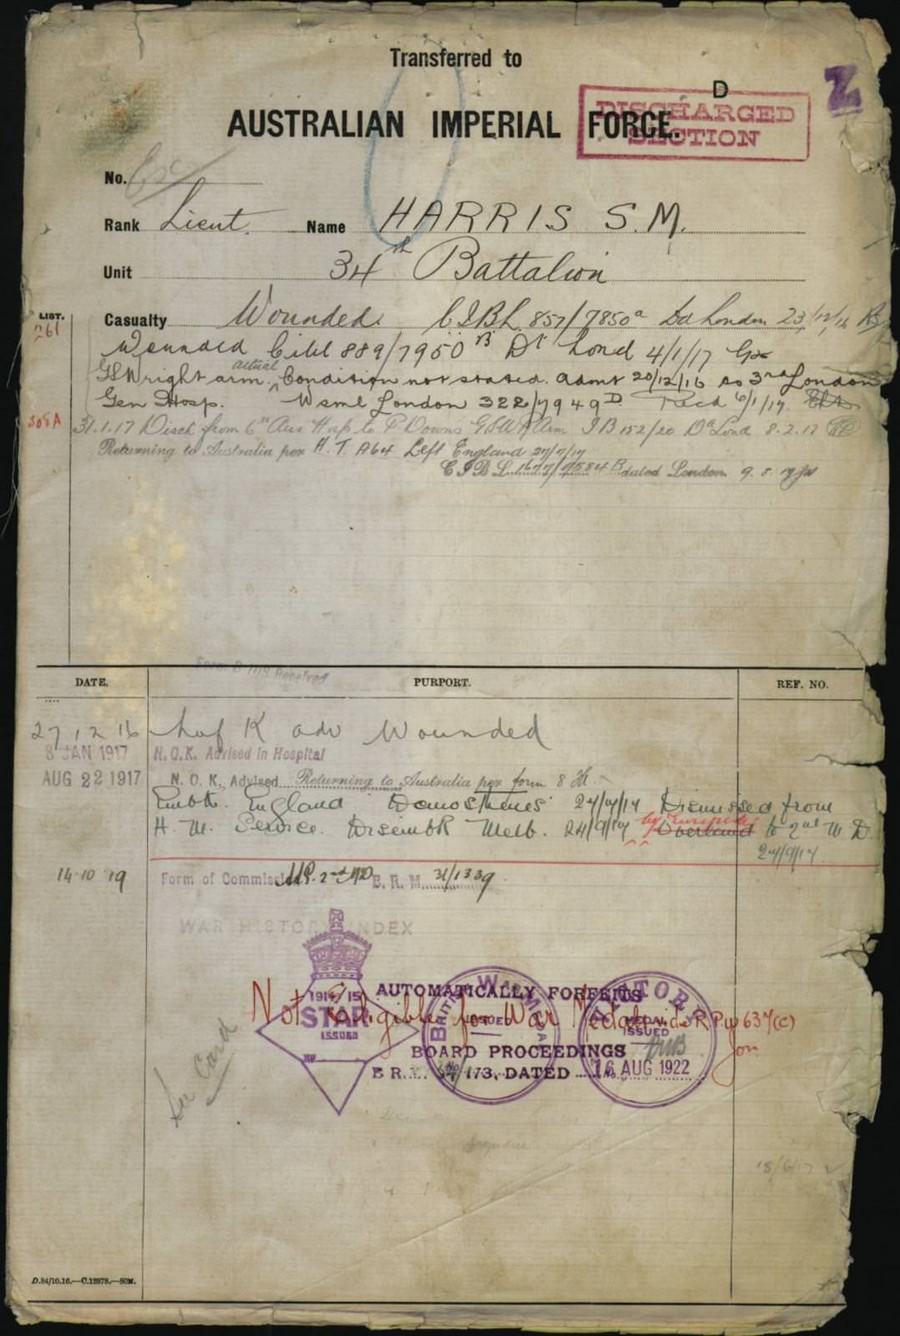 Transferred to
D
Z
AUSTRALIAN IMPERIAL FORCE.
DISCHARGED
SECTION
No.
Rank Lieut. Name HARRIS S.M.
Unit 34th Battalion
LIST.
261
Casualty Wounded. CIBL 857/7850a Dd London 23/12/16
Wounded Cibl 889/7950 B Dt Lond 4/1/17
actual
GSW right arm, Condition not stated. admt 20/12/16 to 3rd London
Gen Hosp. Weml London 322/7949 D Recd 6/1/17
305A
31.1.17 Disch from 6th Aux Hosp to P Downs GSW R Arm IB 152/20 Dd Lond 8.2.17
Returning to Australia per H.T. A64 Left England 27/7/17
CIBL 1677/9584 B dated London 9.8.17
Form B 1118 Received
DATE. PURPORT. REF. NO.
27 12 16 K adv Wounded
8 JAN 1917 N.O.K. Advised in Hospital
AUG 22 1917 N.O.K. Advised Returning to Australia per form 8
Embk. England "Demosthenes" 27/7/17 Dismissed from
H.M. Service. Disembk Melb. 24/9/17 Overland to 2nd M D
24/9/17
14 10 19 Form of Commission 2nd MD B.R.M. 31/1339
WAR HISTORY INDEX
1914/15
STAR
ISSUED
AUTOMATICALLY FORFEITS
BRITISH WAR MEDAL
ISSUED
VICTORY
MEDAL
ISSUED
Not eligible for War Medal vide R P 637(c)
BOARD PROCEEDINGS
B R. /173, DATED
16 AUG 1922
Card
15/6/17
D.84/10.16.—C.12978.—50M.